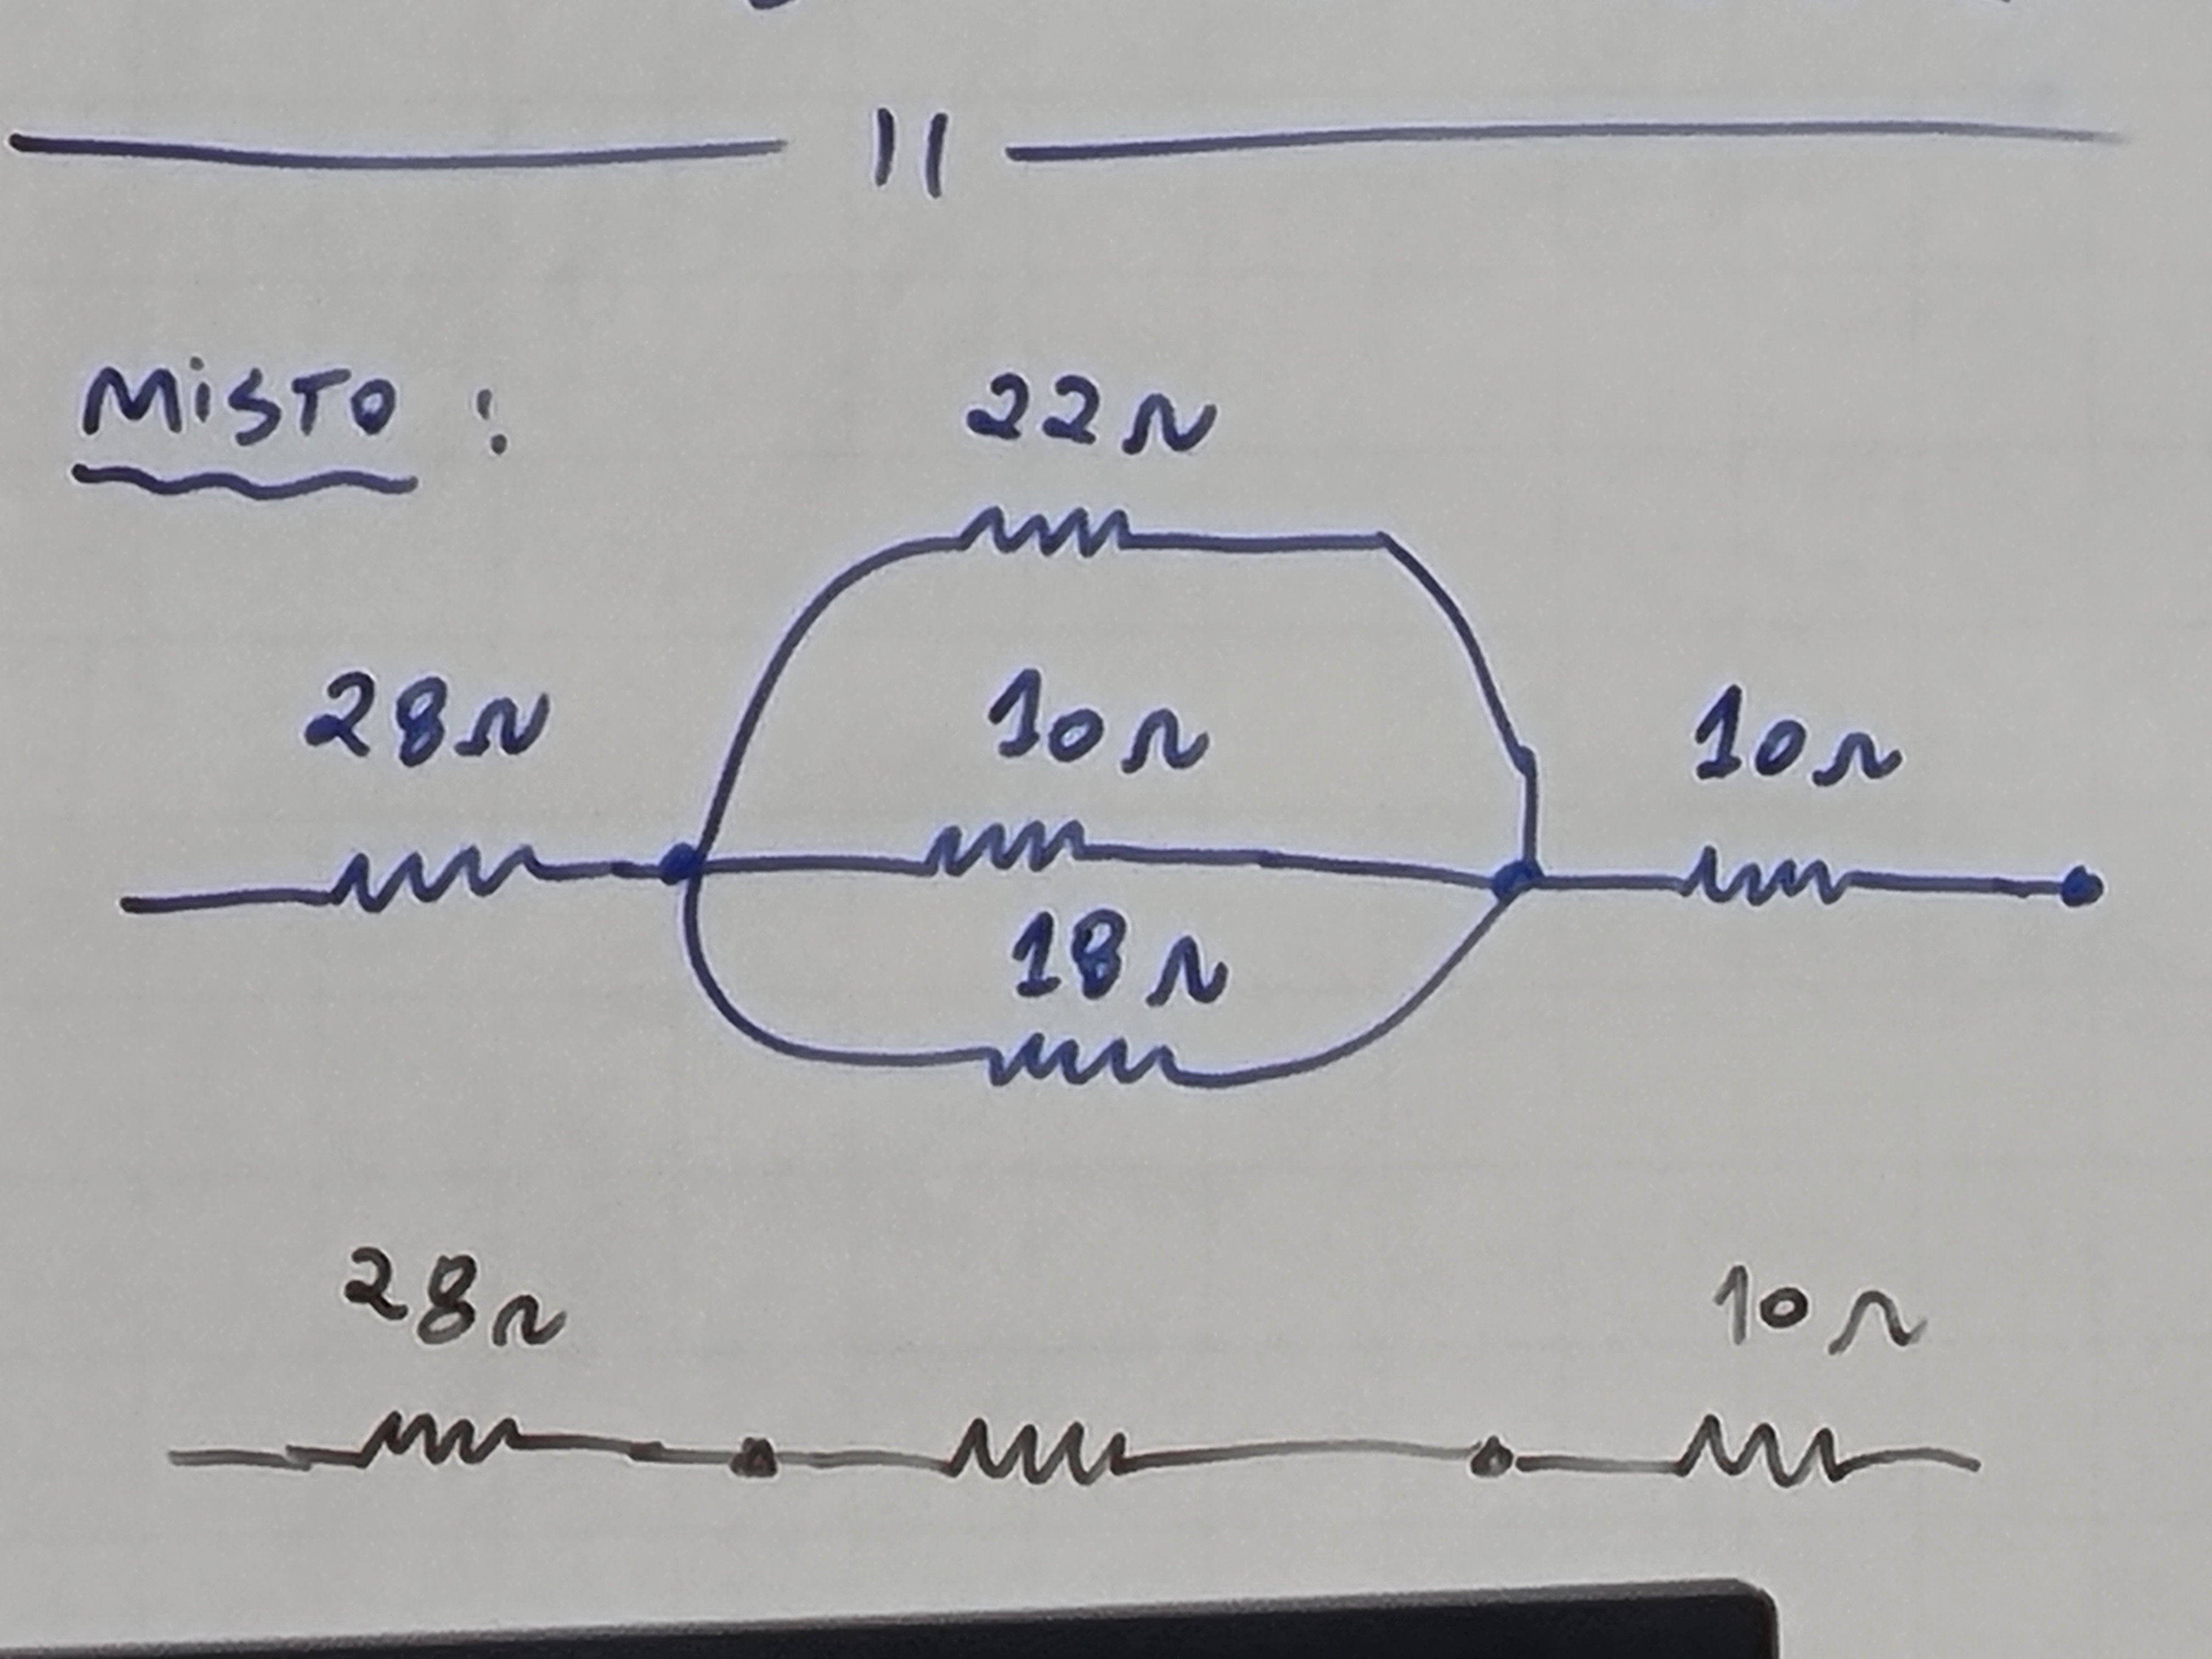 MISTO :
22Ω
28Ω 10Ω 10Ω
18Ω
28Ω 10Ω